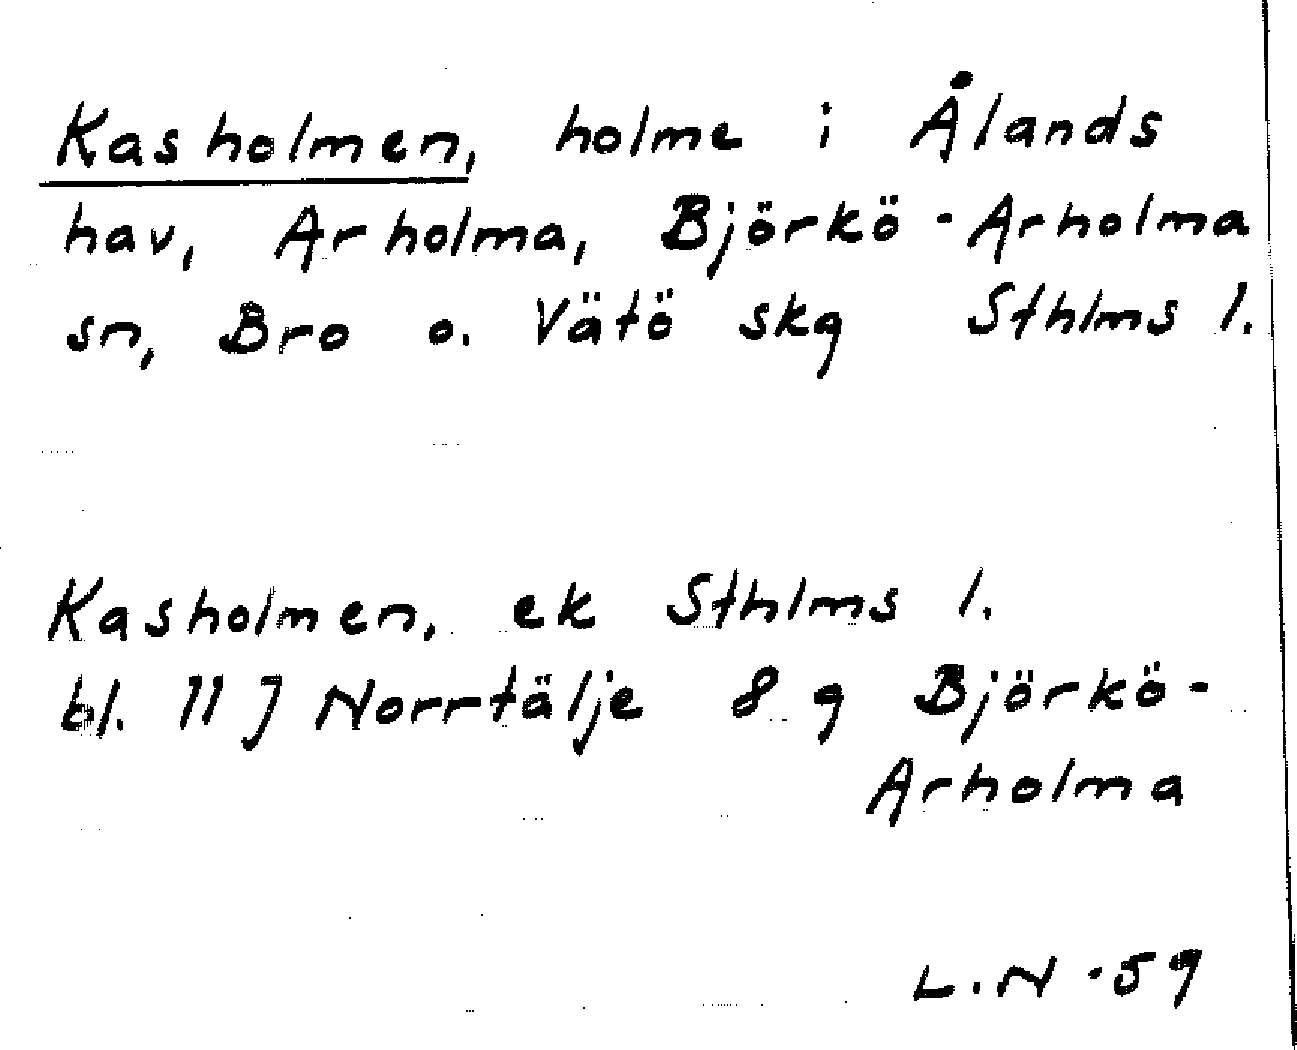 Kasholmen, holme i Ålands
hav, Arholma, Björkö-Arholma
sn, Bro o. Vätö skg Sthlms l.
Kasholmen, ek Sthlms l.
bl. 11 J Norrtälje 8 g Björkö-
Arholma
L.N -59